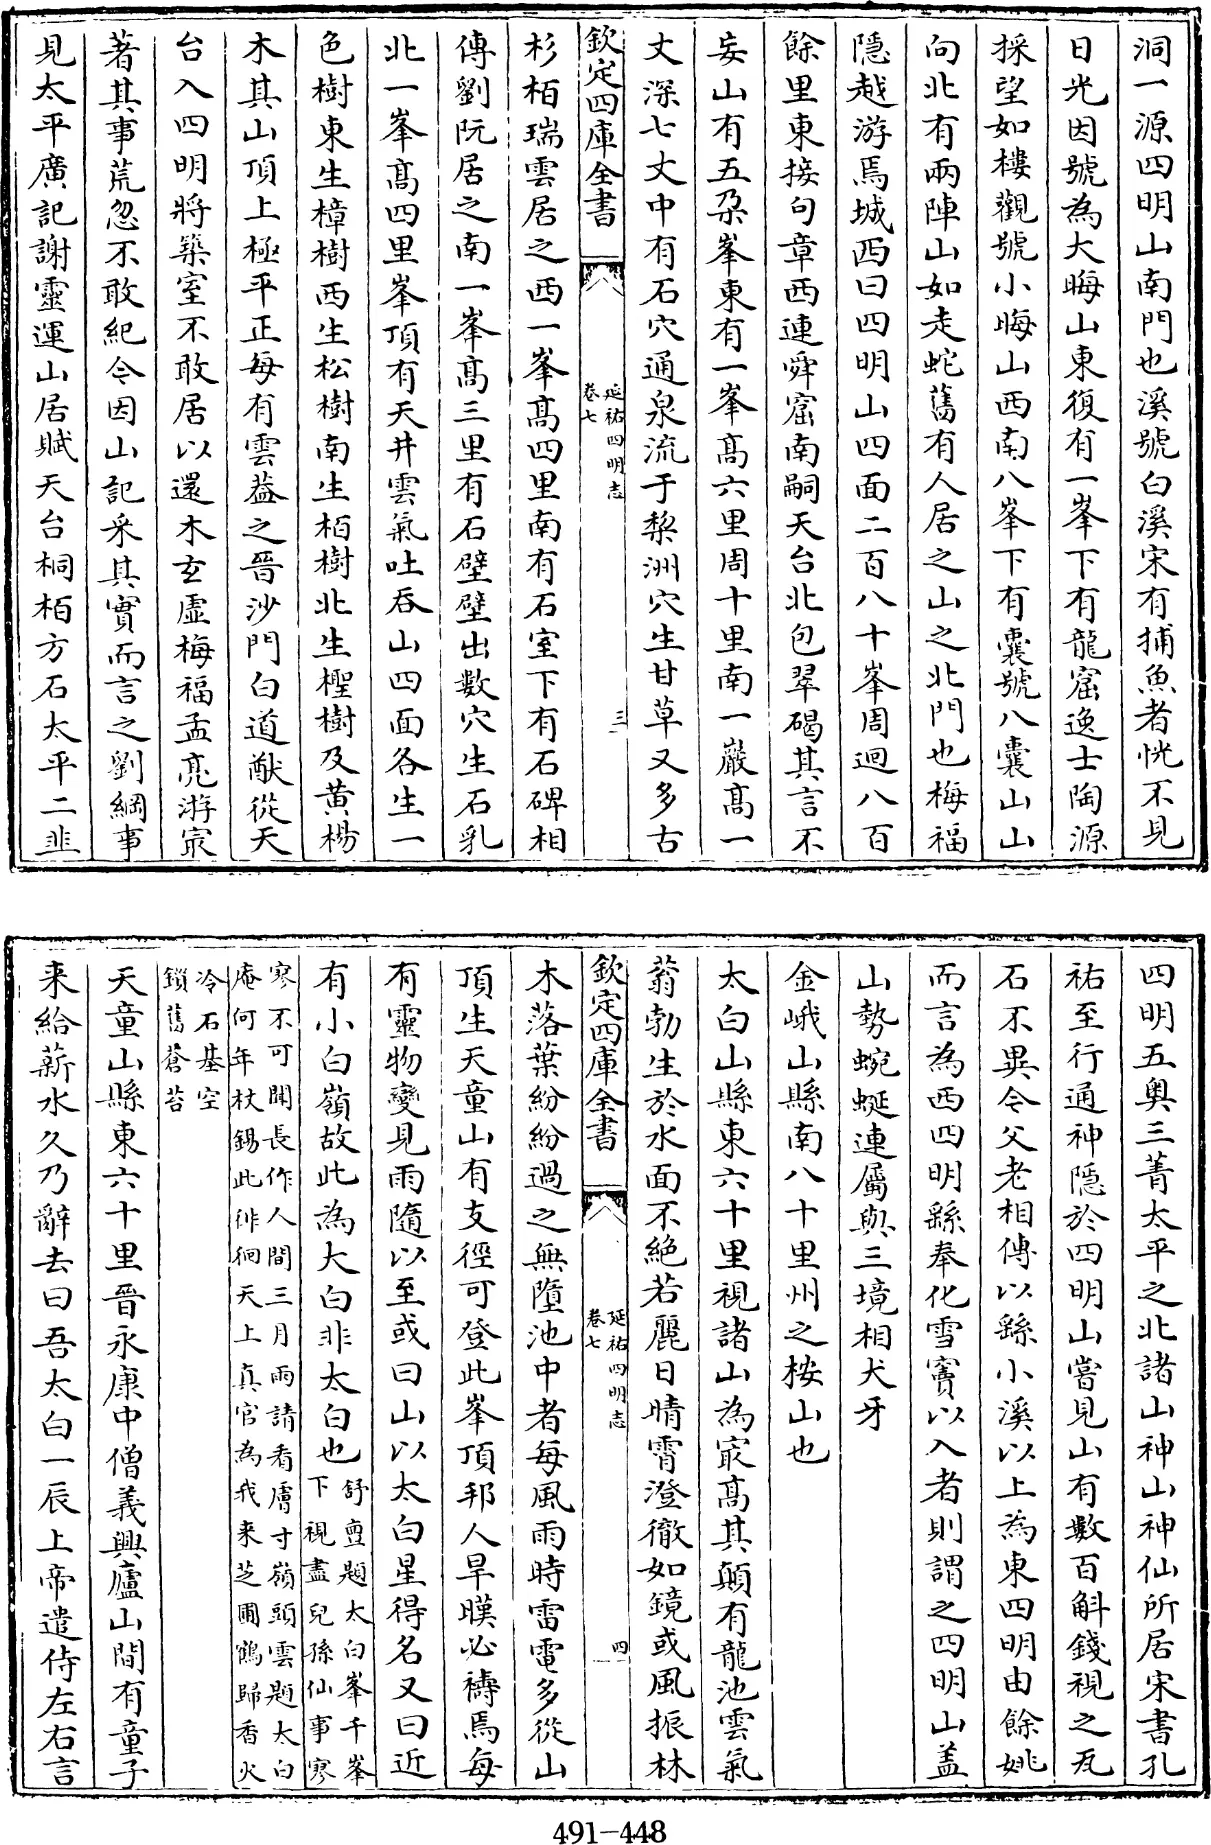 洞一源四明山南門也溪號白溪宋有捕魚者恍不見
日光因號為大晦山東復有一峯下有龍窟逸士陶源
採望如樓觀號小晦山西南八峯下有囊號八囊山山
向北有兩陣山如走蛇舊有人居之山之北門也梅福
隱越游焉城西曰四明山四面二百八十峯周迴八百
餘里東接句章西連舜窟南嗣天台北包翠碣其言不
妄山有五朶峯東有一峯髙六里周十里南一巖髙一
丈深七丈中有石穴通泉流于棃洲穴生甘草又多古
欽定四庫全書
延祐四明志
卷七
三
杉栢瑞雲居之西一峯髙四里南有石室下有石碑相
傳劉阮居之南一峯髙三里有石壁壁出數穴生石乳
北一峯髙四里峯頂有天井雲氣吐吞山四面各生一
色樹東生樟樹西生松樹南生栢樹北生檉樹及黄楊
木其山頂上極平正每有雲葢之晉沙門白道猷從天
台入四明將築室不敢居以還木玄虛梅福孟亮游㝡
著其事荒忽不敢紀今因山記采其實而言之劉綱事
見太平廣記謝靈運山居賦天台桐栢方石太平二韭
四明五奥三菁太平之北諸山神山神仙所居宋書孔
祐至行通神隱於四明山嘗見山有數百斛錢視之瓦
石不異今父老相傳以縣小溪以上為東四明由餘姚
而言為西四明縣奉化雪竇以入者則謂之四明山盖
山勢蜿蜒連屬與三境相犬牙
金峨山縣南八十里州之桉山也
太白山縣東六十里視諸山為㝡髙其顛有龍池雲氣
蓊勃生於水面不絶若麗日晴霄澄徹如鏡或風振林
欽定四庫全書
延祐四明志
卷七
四
木落葉紛紛過之無墮池中者每風雨時雷電多從山
頂生天童山有支徑可登此峯頂邦人旱暵必禱焉每
有靈物變見雨隨以至或曰山以太白星得名又曰近
有小白嶺故此為大白非太白也舒亶題太白峯千峯
下視盡兒孫仙事寥
寥不可聞長作人間三月雨請看膚寸嶺頭雲題太白
庵何年杖錫此徘徊天上真官為我来芝圃鶴歸香火
冷石基空
鎖舊蒼苔
天童山縣東六十里晉永康中僧義興廬山間有童子
来給薪水久乃辭去曰吾太白一辰上帝遣侍左右言
491-448